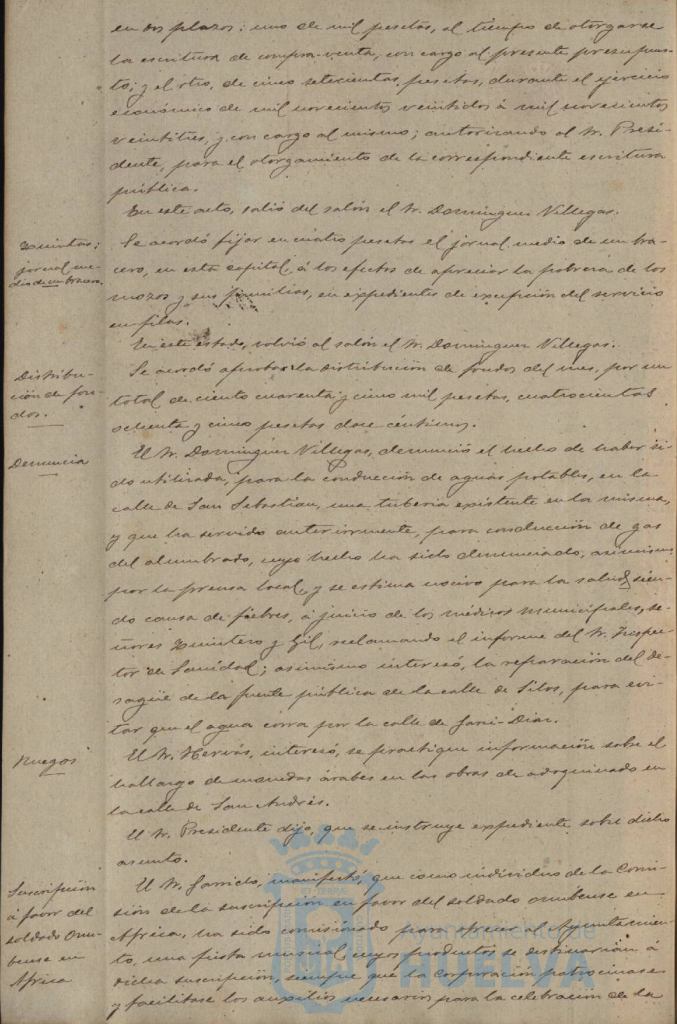 en dos plazos: uno de mil pesetas, al tiempo de otorgarse
la escritura de compra-venta, con cargo al presente presupues-
to; y el otro, de cinco setecientas pesetas, durante el ejercicio
económico de mil novecientos veintidos á mil novecientos
veintitres, y con cargo al mismo; autorizando al Sr. Presi-
dente, para el otorgamiento de la correspondiente escritura
pública.
En este acto, salió del salón el Sr. Dominguez Villegas.
Quintas:
jornal me-
dio de un bracero.
Se acordó fijar en cuatro pesetas el jornal medio de un bra-
cero, en esta capital, á los efectos de apreciar la pobreza de los
mozos y sus familias, en expedientes de excepción del servicio
en filas.
En este estado, volvió al salón el Sr. Dominguez Villegas.
Distribu-
ción de fon-
dos.
Se acordó aprobar la distribución de fondos del mes, por un
total de ciento cuarenta y cinco mil pesetas, cuatrocientas
ochenta y cinco pesetas doce céntimos.
Denuncia
El Sr. Dominguez Villegas, denunció el hecho de haber si-
do utilizada, para la conducción de aguas potables, en la
calle de San Sebastian, una tuberia existente en la misma,
y que ha servido anteriormente, para conducción de gas
del alumbrado, cuyo hecho ha sido denunciado, asimismo
por la prensa local, y se estima nocivo para la salud, sien-
do causa de fiebres, á juicio de los médicos municipales, se-
ñores Quintero y Gil, reclamando el informe del Sr. Inspec-
tor de Sanidad; asimismo interesó, la reparación del de-
sagüe de la fuente pública de la calle de Silos, para evi-
tar que el agua corra por la calle de Jani-Diaz.
Ruegos
El Sr. Hervás, interesó, se practique información sobre el
hallazgo de monedas árabes en las obras de adoquinado en
la calle de San Andrés.
El Sr. Presidente dijo, que se instruye expediente sobre dicho
asunto.
Suscripción
á favor del
soldado Onu-
bense en
Africa
El Sr. Garrido, manifestó, que como individuo de la Comi-
sión de la suscripción en favor del soldado onubense en
Africa, ha sido comisionado para al Ayuntamien-
to, una fiesta musical cuyos productos se destinarian á
dicha suscripción, siempre que la Corporación patrocinase
y facilitase los auxilios necesarios para la celebración de la
Ayuntamiento de
HUELVA